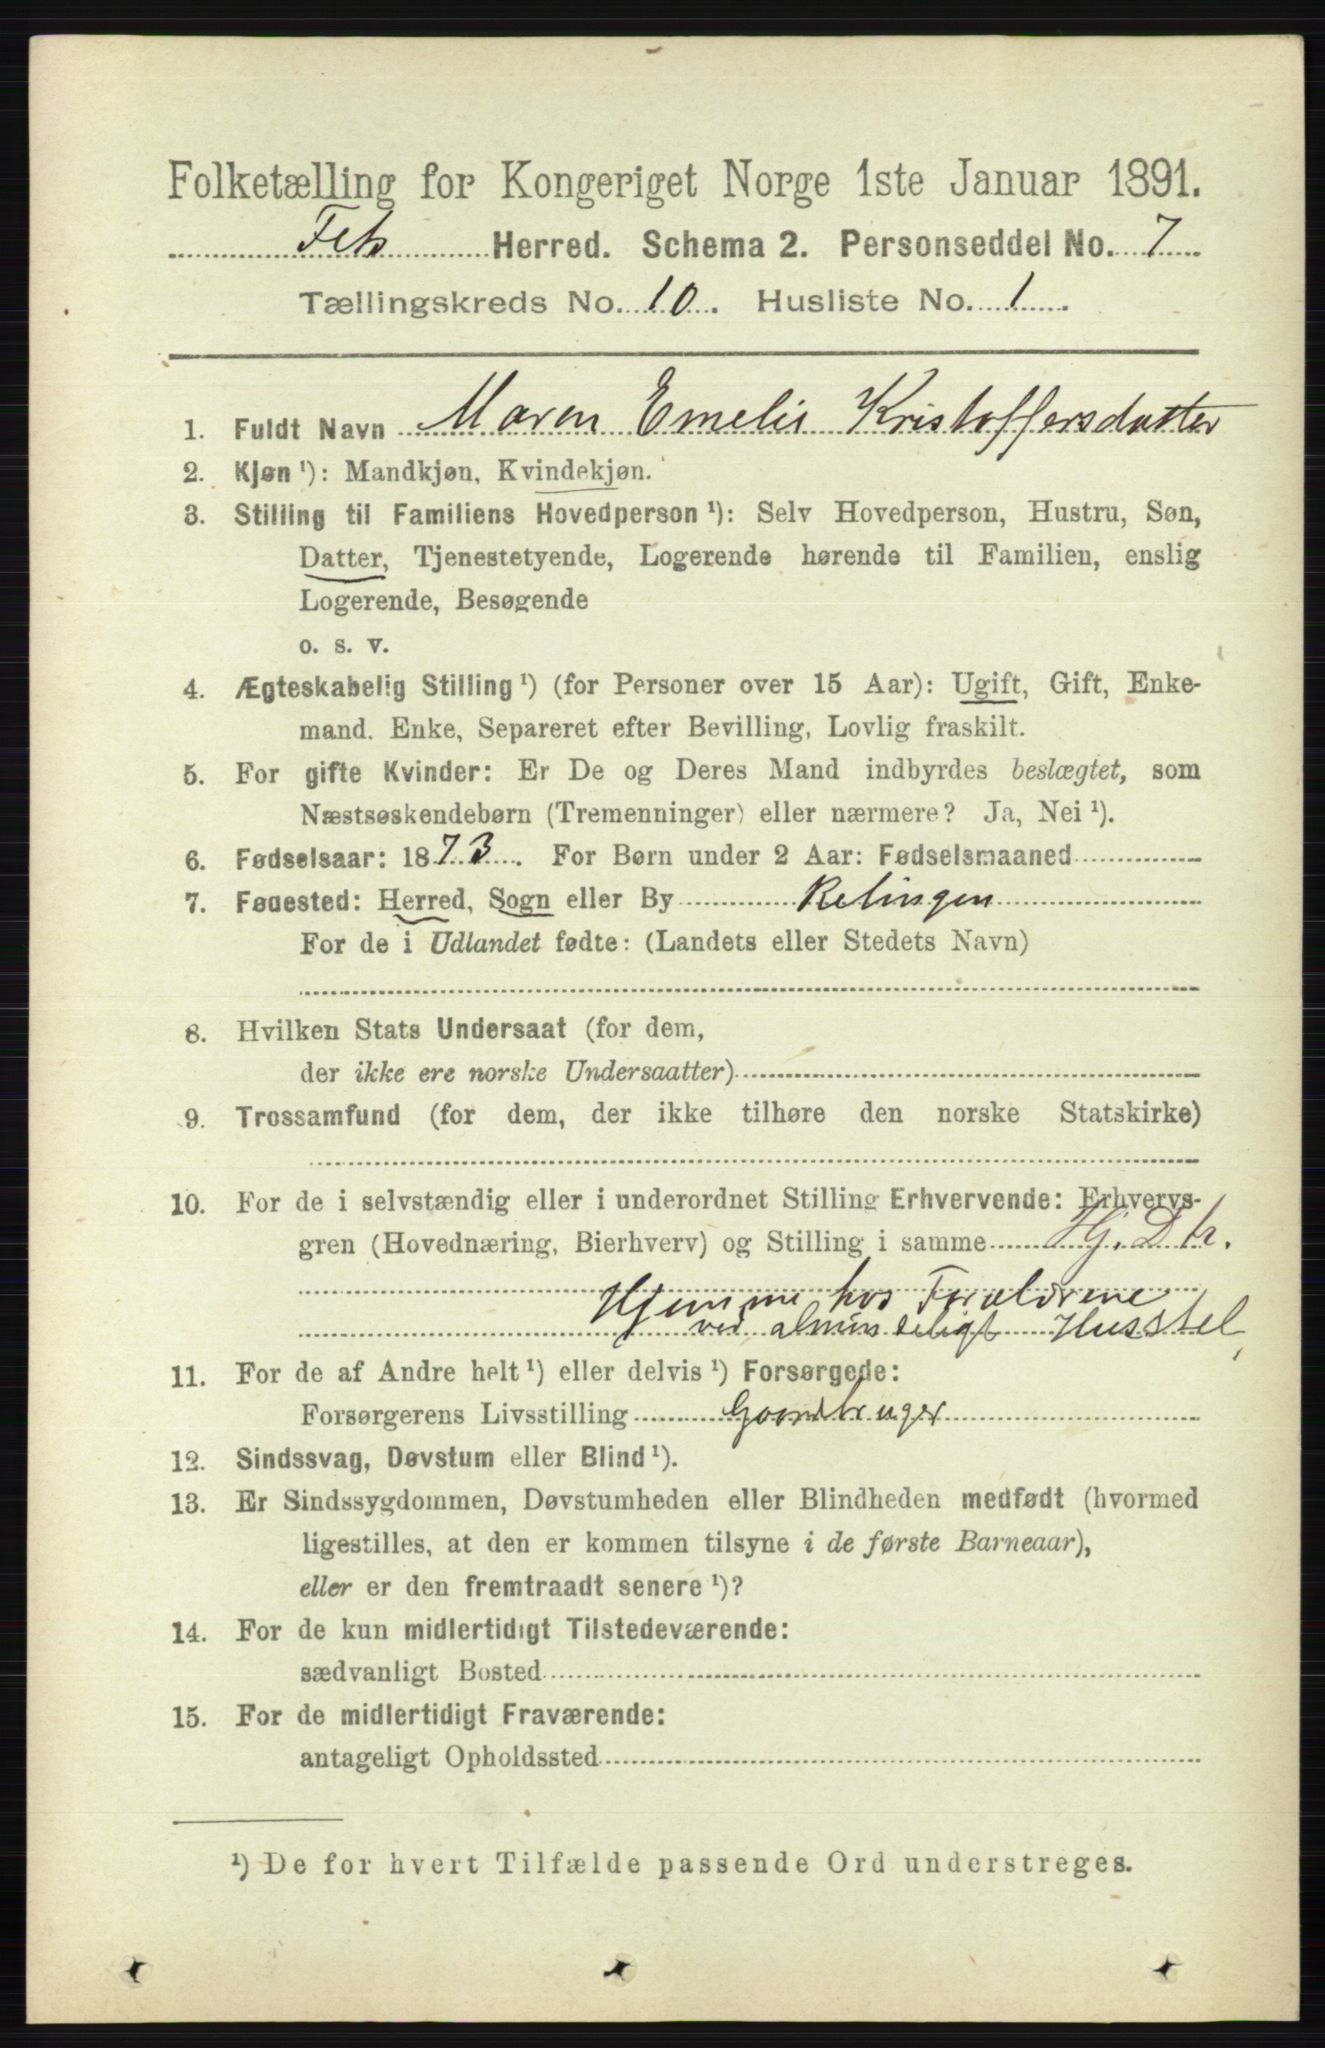 Folketælling for Kongeriget Norge 1ste Januar 1891.
Fets Herred. Schema 2. Personseddel No. 7
Tællingskreds No. 10. Husliste No. 1.
1. Fuldt Navn Maren Emelie Kristoffersdatter
2. Kjøn ¹): Mandkjøn, Kvindekjøn.
3. Stilling til Familiens Hovedperson ¹): Selv Hovedperson, Hustru, Søn,
Datter, Tjenestetyende, Logerende hørende til Familien, enslig
Logerende, Besøgende
o. s. v.
4. Ægteskabelig Stilling ¹) (for Personer over 15 Aar): Ugift, Gift, Enke-
mand. Enke, Separeret efter Bevilling, Lovlig fraskilt.
5. For gifte Kvinder: Er De og Deres Mand indbyrdes beslægtet, som
Næstsøskendebørn (Tremenninger) eller nærmere? Ja, Nei ¹).
6. Fødselsaar: 1873. For Børn under 2 Aar: Fødselsmaaned
7. Fødested: Herred, Sogn eller By Relingen
For de i Udlandet fødte: (Landets eller Stedets Navn)
8. Hvilken Stats Undersaat (for dem,
der ikke ere norske Undersaatter)
9. Trossamfund (for dem, der ikke tilhøre den norske Statskirke)
10. For de i selvstændig eller i underordnet Stilling Erhvervende: Erhvervs-
gren (Hovednæring, Bierhverv) og Stilling i samme Hj. D h.
Hjemme hos Forældrene
ved almindeligt Husstel,
11. For de af Andre helt ¹) eller delvis ¹) Forsørgede:
Forsørgerens Livsstilling Gaardbruger
12. Sindssvag, Døvstum eller Blind ¹).
13. Er Sindssygdommen, Døvstumheden eller Blindheden medfødt (hvormed
ligestilles, at den er kommen tilsyne i de første Barneaar),
eller er den fremtraadt senere ¹)?
14. For de kun midlertidigt Tilstedeværende:
sædvanligt Bosted
15. For de midlertidigt Fraværende:
antageligt Opholdssted
¹) De for hvert Tilfælde passende Ord understreges.